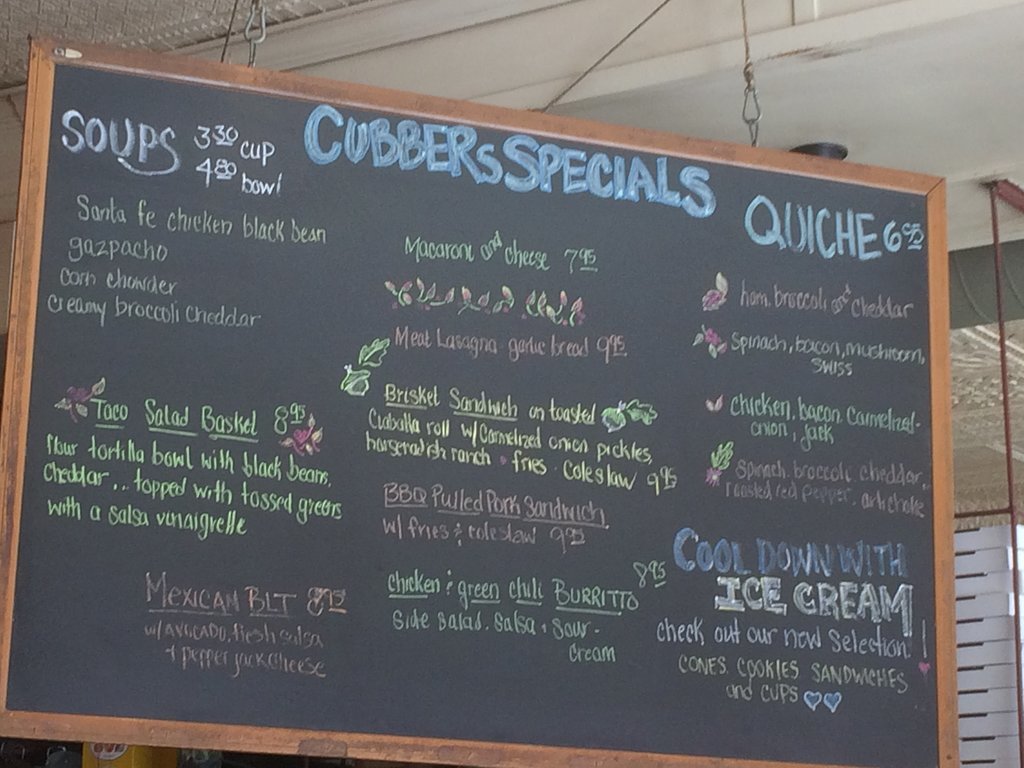 CUBBERS SPECIALS
SOUPS 3.30 cup
4.80 bowl
Santa fe chicken black bean
gazpacho
corn chowder
creamy broccoli cheddar
Taco Salad Basket 8.95
flour tortilla bowl with black beans,
cheddar... topped with tossed greens
with a salsa vinaigrette
MEXICAN BLT 8.95
w/ AVOCADO, fresh salsa
+ pepper jack cheese
Macaroni and cheese 7.95
Meat Lasagna garlic bread 9.95
Brisket Sandwich on toasted
Ciabatta roll w/ Carmelized onion pickles,
horseradish ranch + fries. Coleslaw 9.95
BBQ Pulled Pork Sandwich
w/ fries & coleslaw 9.95
chicken & green chili BURRITO 8.95
side salad. salsa + sour-
cream
QUICHE 6.95
ham, broccoli and cheddar
Spinach, bacon, mushroom,
SWISS
chicken, bacon, Carmelized-
onion, jack
spinach, broccoli, cheddar,
roasted red pepper, artichoke
COOL DOWN WITH
ICE CREAM!
check out our new selection!
CONES, COOKIES, SANDWICHES
and CUPS